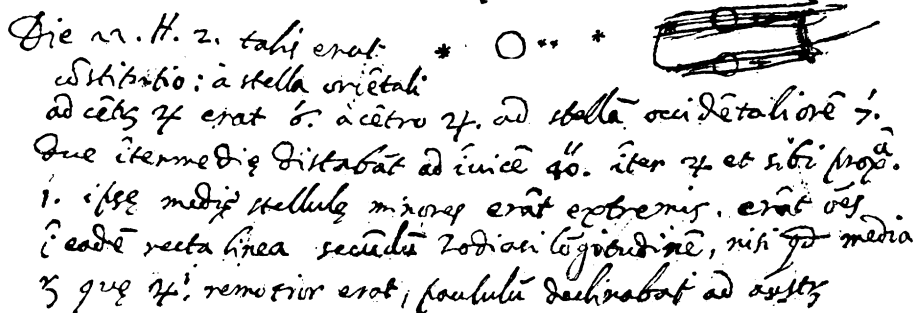 Die 22. H. 2. talis erat
cõstitutio: à stella oriẽtali
ad cẽtꝝ ♃ erat 6. à cẽtro ♃. ad stellã occidẽtaliorẽ 7.
Due ĩtermedię distabãt ad ĩuicẽ 40''. ĩter ♃ et sibi propã.
1. ipsę medię stellulę minores erãt extremis. erãt oẽs
ĩ eadẽ recta linea secũdũ Zodiaci lõgitudinẽ, nisi qd media
ꝝ quę ♃ⁱ. remotior erat, paululũ declinabat ad austꝝ